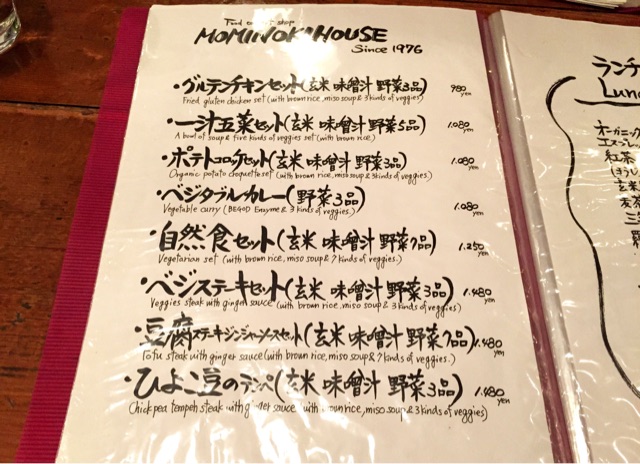 MOMINOKI HOUSE
Since 1976
・グルテンチキンセット(玄米 味噌汁 野菜3品) 980 yen
Fried gluten chicken set (with brown rice, miso soup & 3 kinds of veggies)
・一汁五菜セット(玄米 味噌汁 野菜5品) 1.080 yen
A bowl of soup & five kinds of veggies set (with brown rice)
・ポテトコロッケセット(玄米 味噌汁 野菜3品) 1.080 yen
Organic potato croquette set (with brown rice, miso soup & 3 kinds of veggies.)
・ベジタブルカレー(野菜3品) 1.080 yen
Vegetable curry (BE-GOD Enzyme & 3 kinds of veggies.)
・自然食セット(玄米 味噌汁 野菜7品) 1.250 yen
Vegetarian set (with brown rice, miso soup & 7 kinds of veggies.)
・ベジステーキセット(玄米 味噌汁 野菜3品) 1.480 yen
Veggies steak with ginger sauce (with brown rice, miso soup & 3 kinds of veggies.)
・豆腐ステーキジンジャーソースセット(玄米 味噌汁 野菜7品) 1.480 yen
Tofu steak with ginger sauce (with brown rice, miso soup & 7 kinds of veggies.)
・ひよこ豆のテンペ(玄米 味噌汁 野菜3品) 1.480 yen
Chick pea tempeh steak with ginger sauce (with brown rice, miso soup & 3 kinds of veggies)
ランチ
Lunc
オーガニック
エスプレ
紅茶
玄米
麦茶
三